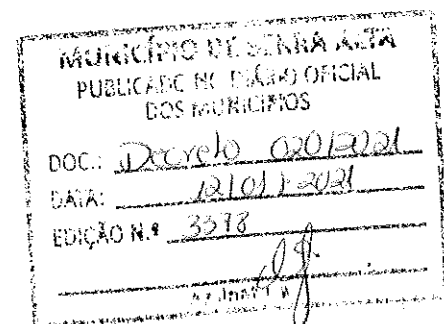 MUNICÍPIO DE SERRA ALTA
PUBLICADO NO DIÁRIO OFICIAL
DOS MUNICÍPIOS
DOC.: Decreto 020/2021
DATA: 12/01/2021
EDIÇÃO N.º 3378